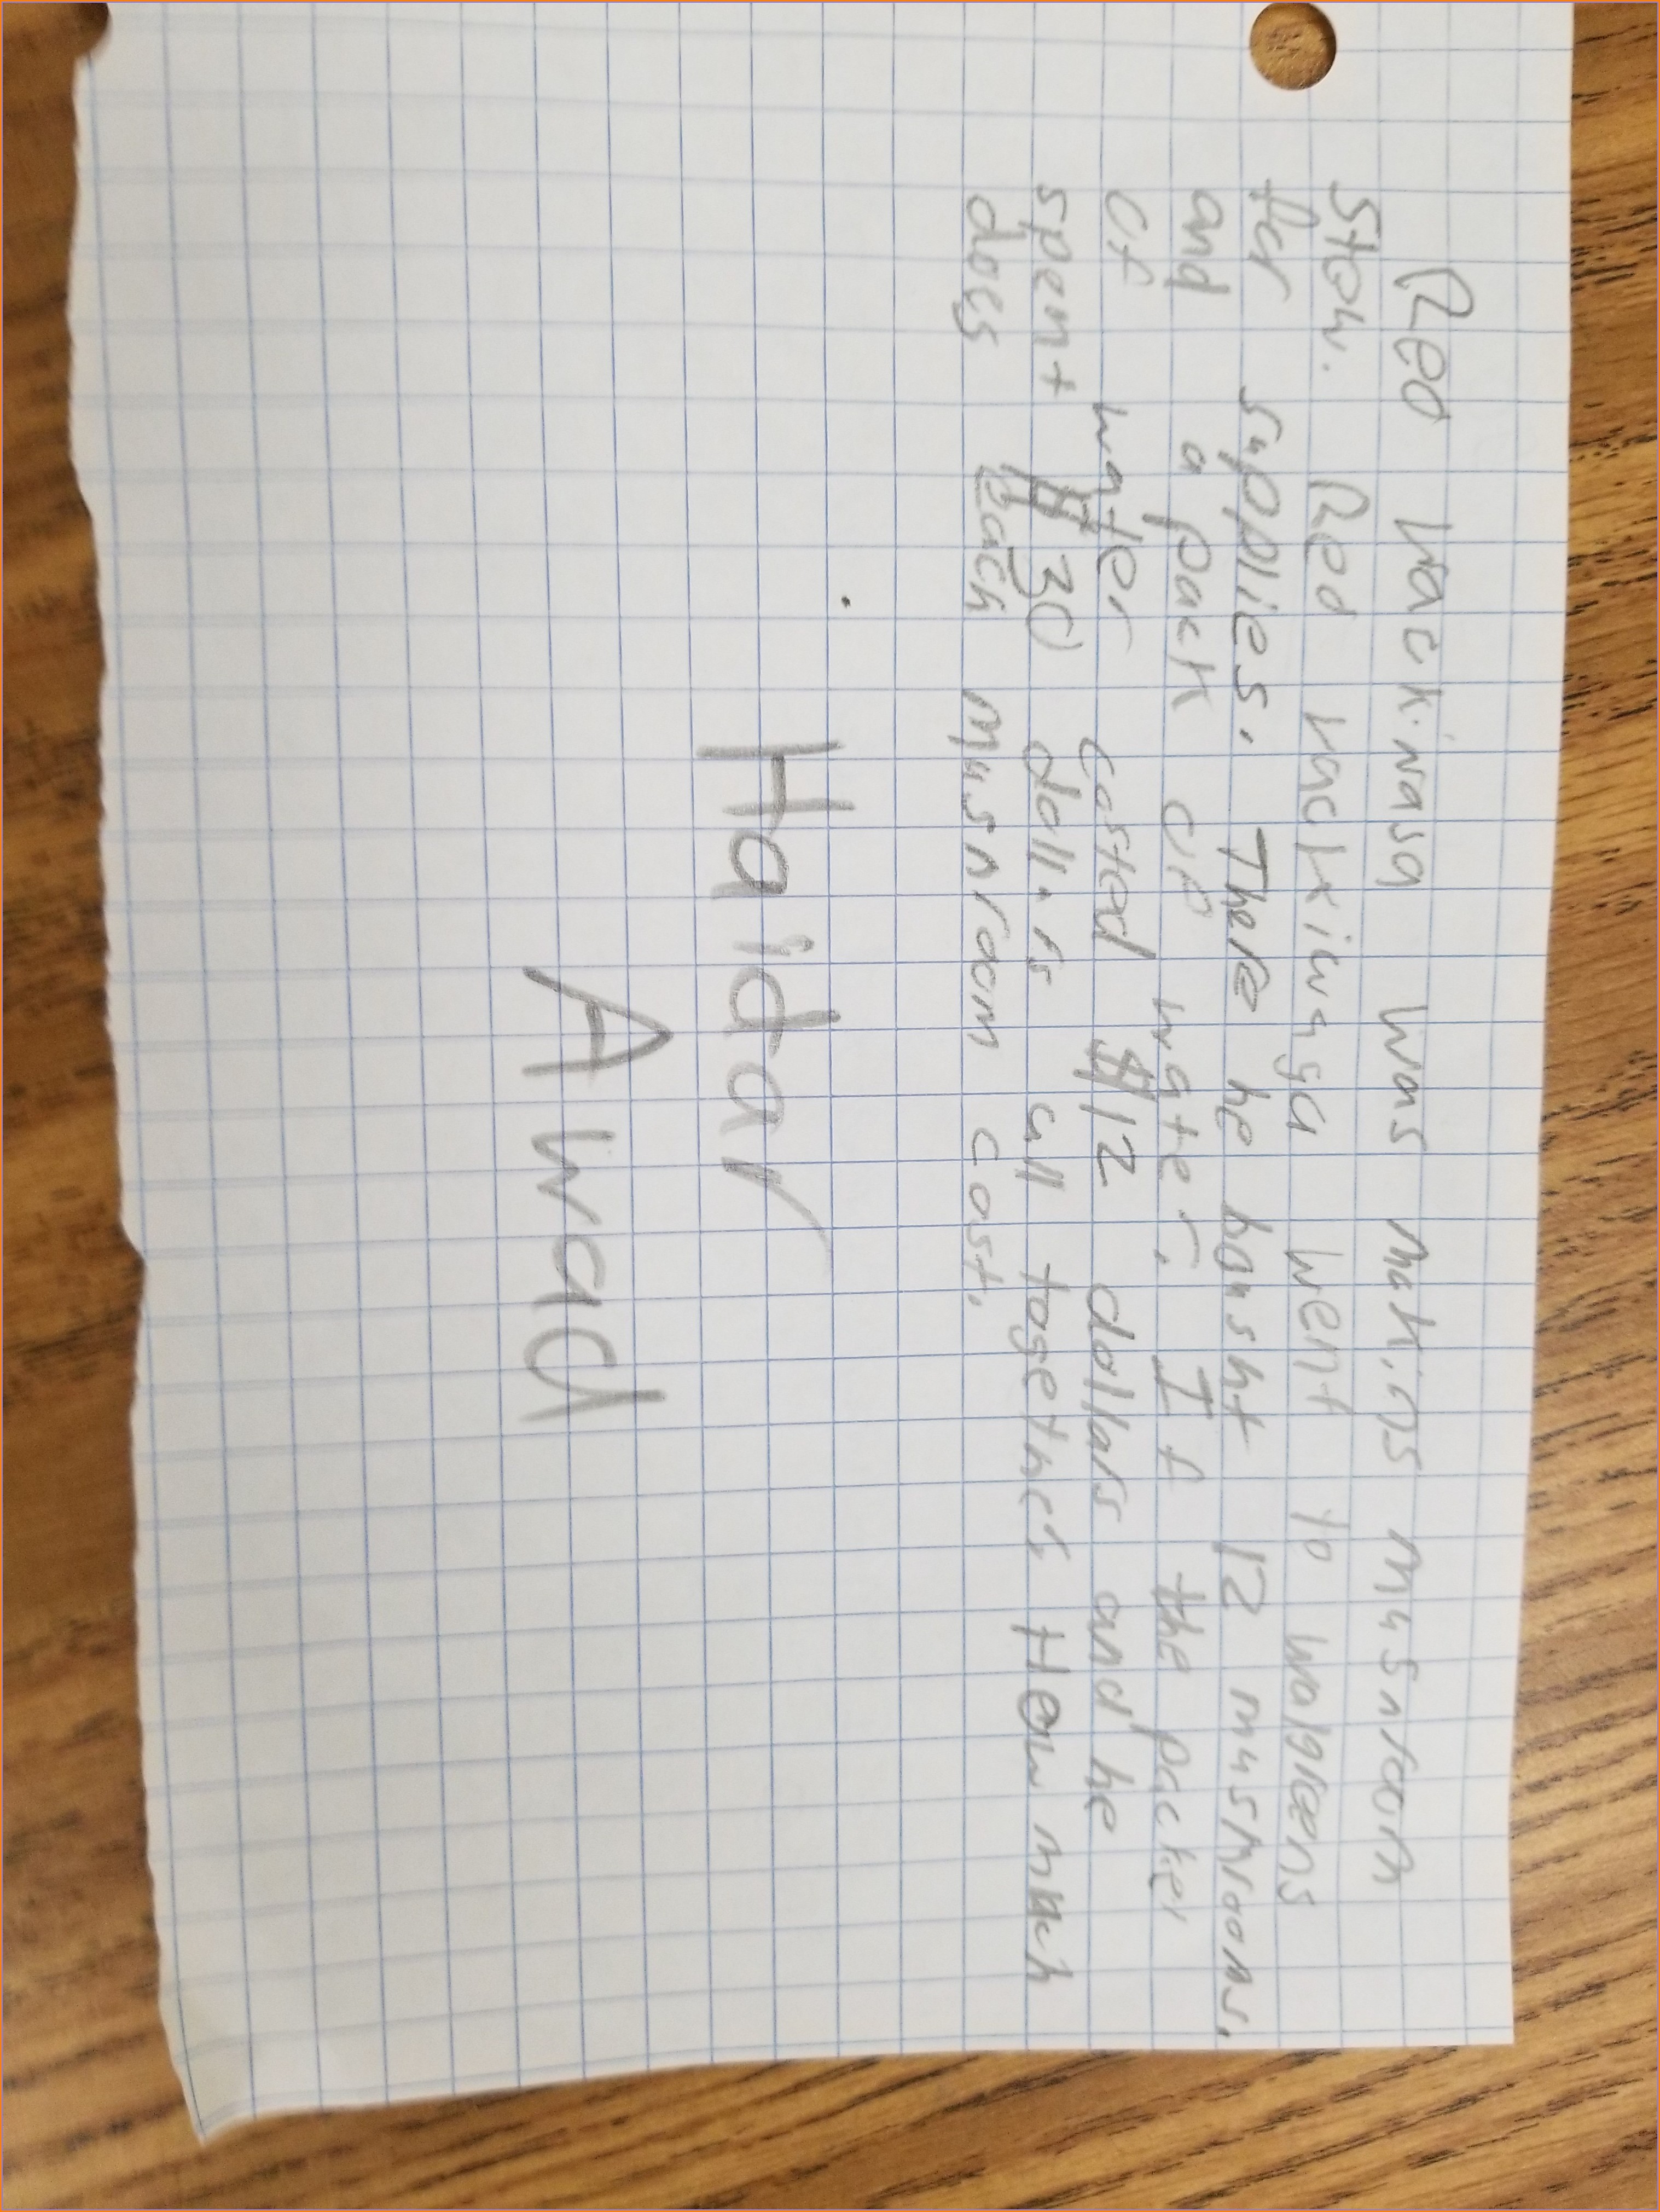 Red wackinasa was making musnroom
stow. Red wackiwnga went to walgreens
for supplies. There he bousht 12 mushrooms.
and a pack of water. If the packer
of water costed $12 dollars and he
spent $30 dollars all together How much
does each musnroom cost.
Haidar
Awad